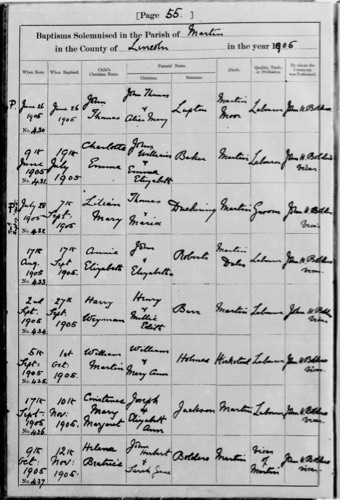 [Page 55.]
Baptisms Solemnised in the Parish of Martin
in the County of Lincoln in the year 1905
When Born. When Baptised. Child's Christian Name. Parents' Name Abode. Quality, Trade, or Profession. By whom the Ceremony was Performed.
Christian. Surname.
P. June 26 1905 No. 430 June 26 1905 John Thomas John Thomas & Alice Mary Lupton Martin Moor Labourer John W Bolders
9th June 1905 No. 431 9th July 1905 Charlotte Emma John William & Emma Elizabeth Baker Martin Labourer John W Bolders vicar
July 28 1905 No. 432 7th Sept. 1905 Lilian Mary Thomas & Maria Martin Groom John W Bolders vicar
17th Aug. 1905 No. 433 17th Sept. 1905 Annie Elizabeth John & Elizabeth Roberts Martin Dales Labourer John W Bolders vicar
2nd Sept. 1905 No. 434 27th Sept. 1905 Harry Weyman Henry & Millie Edith Burr Martin Labourer John W Bolders vicar
5th Sept. 1905 No. 435 1st Oct. 1905. William Martin William & Mary Ann Holmes Kirkstead Labourer John W Bolders vicar
17th Sept. 1905 No. 436 10th Nov. 1905 Constance Mary Margaret Joseph & Elizabeth Ann Jackson Martin Labourer John W Bolders vicar
9th Oct. 1905 No. 437 12th Nov. 1905 Helena Beatrice John Herbert & Sarah Jane Bolders Martin Vicar of Martin John W Bolders vicar